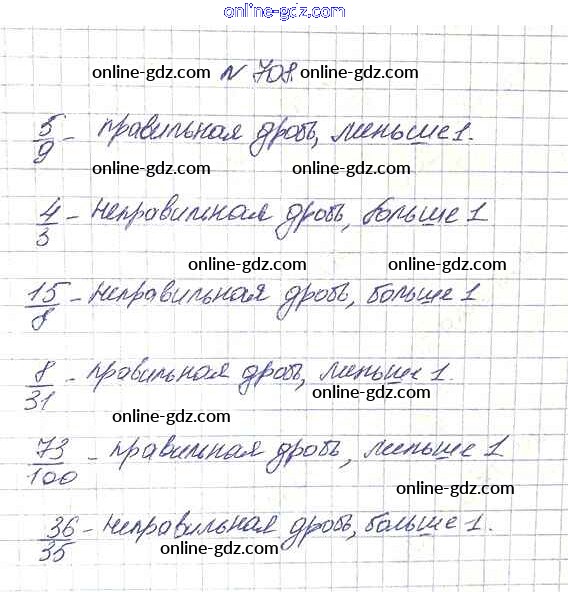 online-gdz.com
online-gdz.com № 708. online-gdz.com
5/9 - правильная дробь, меньше 1.
online-gdz.com online-gdz.com
4/3 - неправильная дробь, больше 1
online-gdz.com online-gdz.com
15/8 - неправильная дробь, больше 1
online-gdz.com
8/31 - правильная дробь, меньше 1.
online-gdz.com online-gdz.com
73/100 - правильная дробь, меньше 1
online-gdz.com
36/35 - неправильная дробь, больше 1.
online-gdz.com